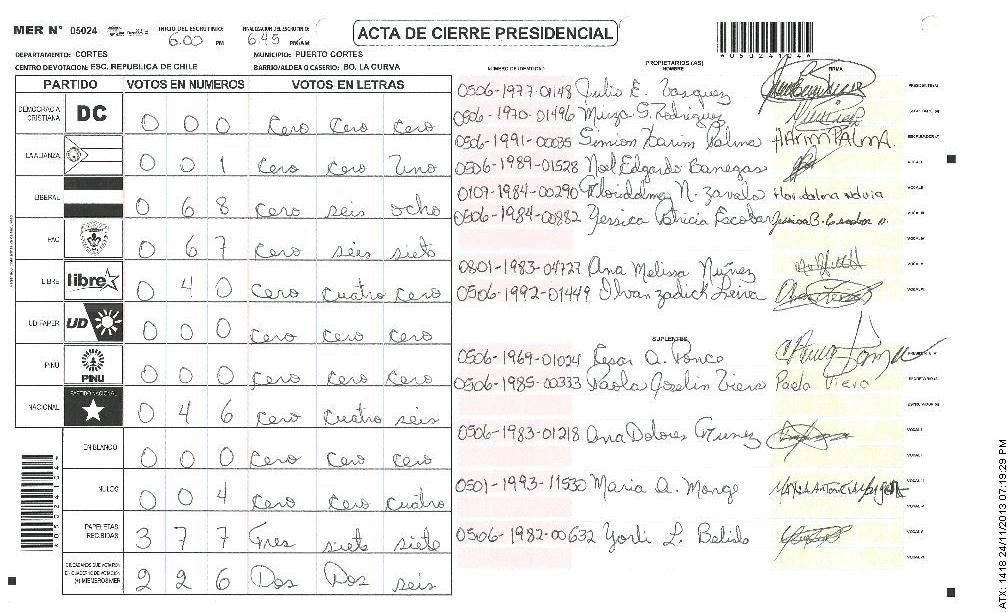 MER N° 05024 INICIO DEL ESCRUTINIO: 6:00 PM FINALIZACION DEL ESCRUTINIO: 6:45 PM/AM
ACTA DE CIERRE PRESIDENCIAL
DEPARTAMENTO: CORTES MUNICIPIO: PUERTO CORTES
CENTRO DE VOTACION: ESC. REPUBLICA DE CHILE BARRIO/ALDEA O CASERIO: BO. LA CURVA
PARTIDO VOTOS EN NUMEROS VOTOS EN LETRAS
DEMOCRACIA CRISTIANA DC 0 0 0 Cero Cero Cero
LA ALIANZA 0 0 1 Cero Cero Uno
LIBERAL 0 6 8 Cero seis ocho
PAC 0 6 7 Cero seis siete
LIBRE libre 0 4 0 Cero Cuatro Cero
UD-FAPER UD 0 0 0 Cero Cero Cero
PINU PINU 0 0 0 Cero Cero Cero
NACIONAL PARTIDO NACIONAL 0 4 6 Cero Cuatro seis
EN BLANCO 0 0 0 Cero Cero Cero
NULOS 0 0 4 Cero Cero Cuatro
PAPELETAS RECIBIDAS 3 7 7 Tres siete siete
CIUDADANOS QUE VOTARON EN CUADERNO DE VOTACION (+) MIEMBROS MER 2 2 6 Dos Dos seis
NUMERO DE IDENTIDAD PROPIETARIOS (AS) NOMBRE FIRMA
0506-1977-01148 Julio E. Vasquez
0506-1970-01496 Mirza S. Rodriguez
0506-1991-00035 Simion Karim Palma KARIM PALMA
0506-1989-01528 Noel Edgardo Banegas
0107-1984-00290 Floridalma N. Zavala
0506-1984-00882 Yessica Patricia Escobar
0801-1983-04727 Ana Melissa Nuñez
0506-1992-01449
SUPLENTES
0506-1969-01024 Cesar A. Ponce
0506-1985-00333 Paola Joselin Viera Paola Viera
0506-1983-01218 Ana Dolores
0501-1993-11530 Maria A. Monge
0506-1982-00632
ATX: 1418 24/11/2013 07:19:29 PM